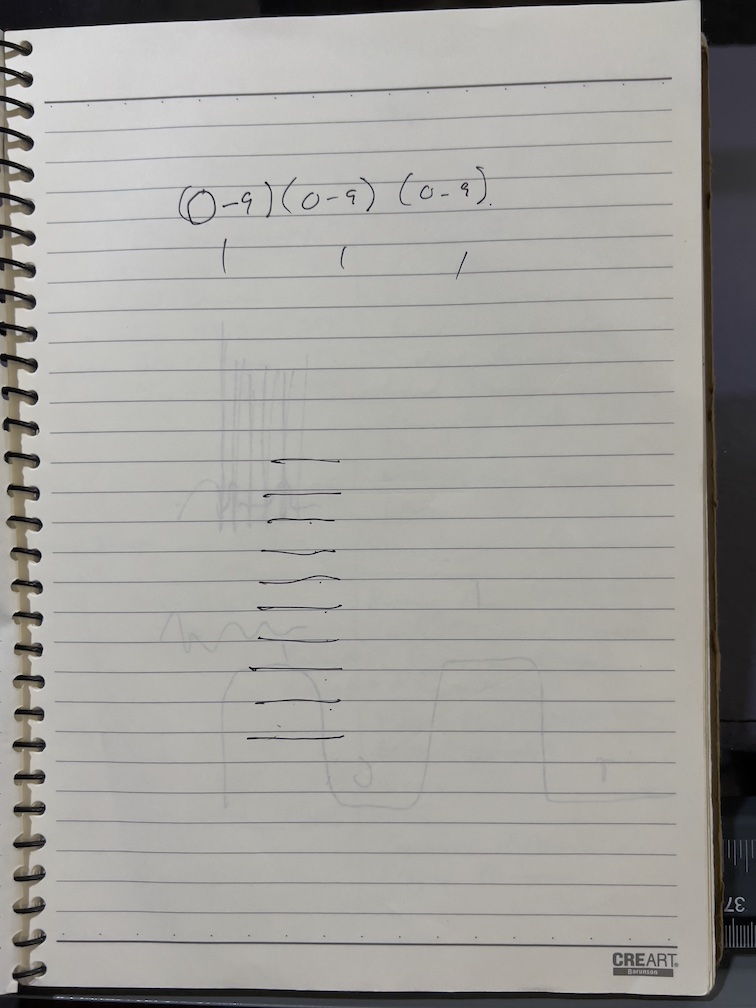 (0-9)(0-9) (0-9).
1 1 1
CREART
Barunson